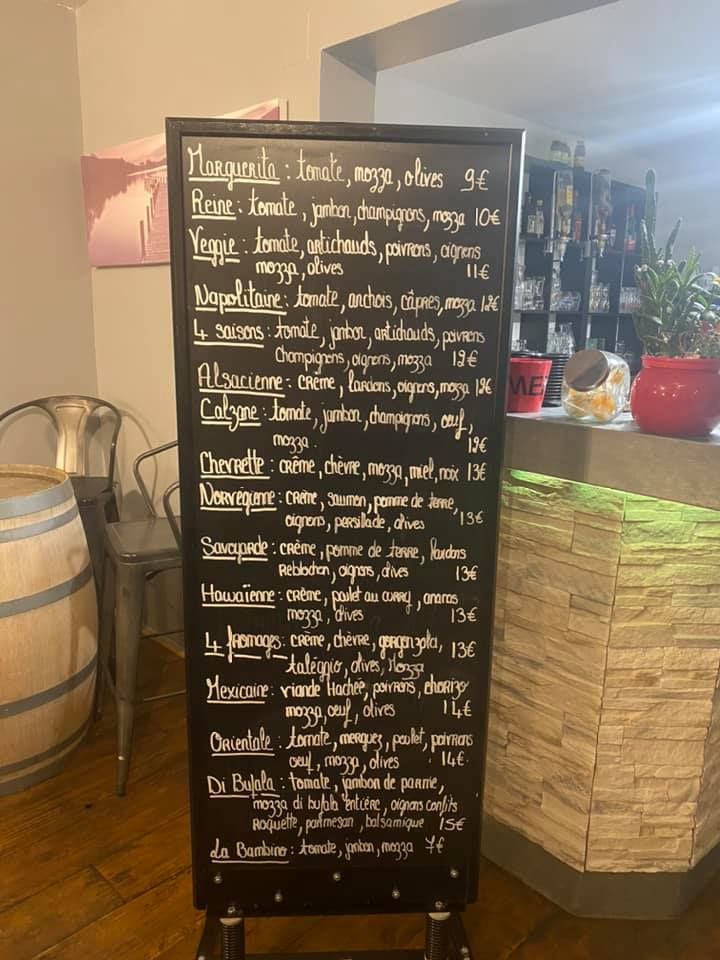 Marguerita : tomate, mozza, olives 9€
Reine : tomate, jambon, champignons, mozza 10€
Veggie : tomate, artichauds, poivrons, oignons
mozza, olives 11€
Napolitaine : tomate, anchois, câpres, mozza 12€
4 saisons : tomate, jambon, artichauds, poivrons
Champignons, oignons, mozza 12€
Alsacienne : crème, lardons, oignons, mozza 12€
Calzone : tomate, jambon, champignons, oeuf,
mozza. 12€
Chevrette : crême, chèvre, mozza, miel, noix 13€
Norvégienne : crème, saumon, pomme de terre,
oignons, persillade, olives 13€
Savoyarde : crème, pomme de terre, lardons
Reblochon, oignons, olives 13€
Hawaïenne : crème, poulet au curry, ananas
mozza, olives 13€
4 fromages : crème, chèvre, gorgonzola, 13€
taléggio, olives, Mozza
Mexicaine : viande Hachée, poivrons, chorizo
mozza, oeuf, olives 14€
Orientale : tomate, merguez, poulet, poivrons
oeuf, mozza, olives 14€.
Di Bufala : tomate, jambon de parme,
mozza di bufala entière, oignons confits
Roquette, parmesan, balsamique 15€
La Bambino : tomate, jambon, mozza 7€